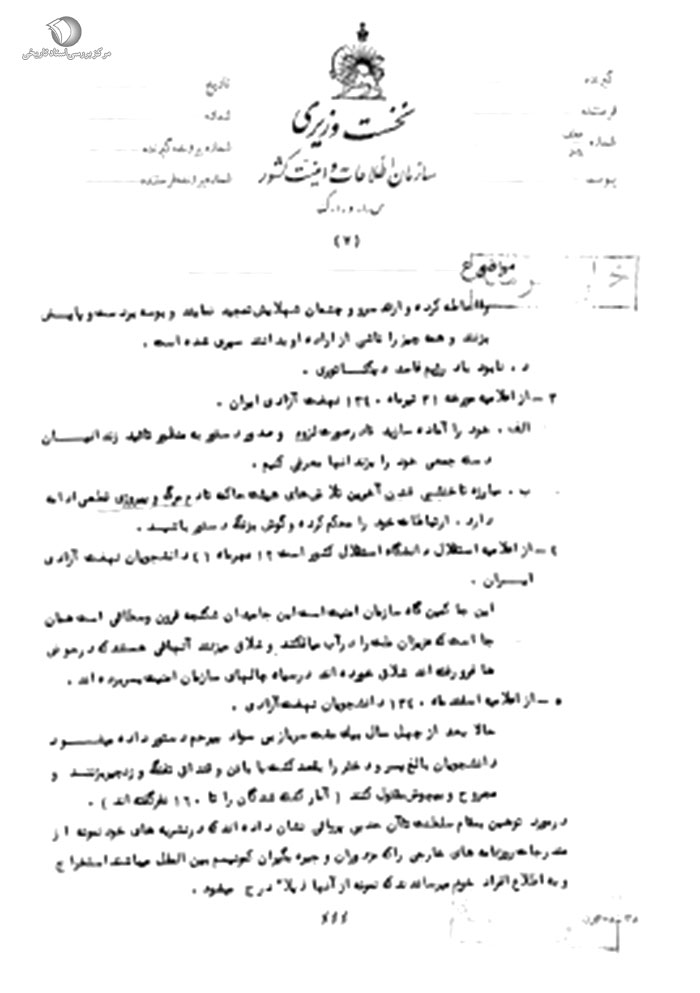 مرکز بررسی اسناد تاریخی
گیرنده
فرستنده
شماره
پیوست
تاریخ
شماره
شماره پرونده گیرنده
شماره پرونده فرستنده
نخست وزیری
سازمان اطلاعات و امنیت کشور
س.ا.و.ا.ک
(۷)
موضوع
احاطه کرده و ارند سرو و چشمان شهلایش تمجید نمایند و بوسه بر دست و پایش
بزنند و همه چیز را ناشی از اراده او بدانند سپری شده است .
د . نابود باد رژیم فاسد دیکتاتوری .
۳ - از اعلامیه مورخه ۳۱ تیرماه ۱۳۴۰ نهضت آزادی ایران .
الف . خود را آماده سازید تا در صورت لزوم و صدور دستور به منظور تائید زندانیان
دسته جمعی خود را بزندانها معرفی کنیم .
ب . مبارزه تا خنثی شدن آخرین تلاش های هیئت حاکمه تا دم مرگ و پیروزی قطعی ادامه
دارد . ارتباطات خود را محکم کرده و گوش بزنگ دستور باشید .
۴ - از اعلامیه استقلال دانشگاه استقلال کشور است ۱۲ مهرماه ۴۱ دانشجویان نهضت آزادی
ایران .
این جا کمین گاه سازمان امنیت است این جا میدان شکنجه قرون وسطائی است همان
جا است که عزیزان ملت را در آب میافکنند و شلاق میزنند آنهائی هستند که در حوض
ها فرو رفته اند شلاق خورده اند در سیاه چالهای سازمان امنیت بسر برده اند .
۵ - از اعلامیه اسفند ماه ۱۳۴۰ دانشجویان نهضت آزادی .
حالا بعد از چهل سال بیک مشت سرباز بی سواد بیرحم دستور داده میشود
دانشجویان بالغ پسر و دختر را بقصد کشت با باتن و قنداق تفنگ و زنجیر بزنند و
مجروح و بیهوش مقتول کنند ( آمار کشته شدگان را تا ۱۶۰ نفر گفته اند ) .
در مورد توهین بمقام سلطنت تا آن حد بی پروائی نشان داده اند که در نشریه های خود نمونه از
مندرجات روزنامه های خارجی را که مزدوران و جیره بگیران کمونیسم بین الملل میباشند استخراج
و به اطلاع افراد خود میرسانند که نمونه از آنها ذیلا" درج میشود .